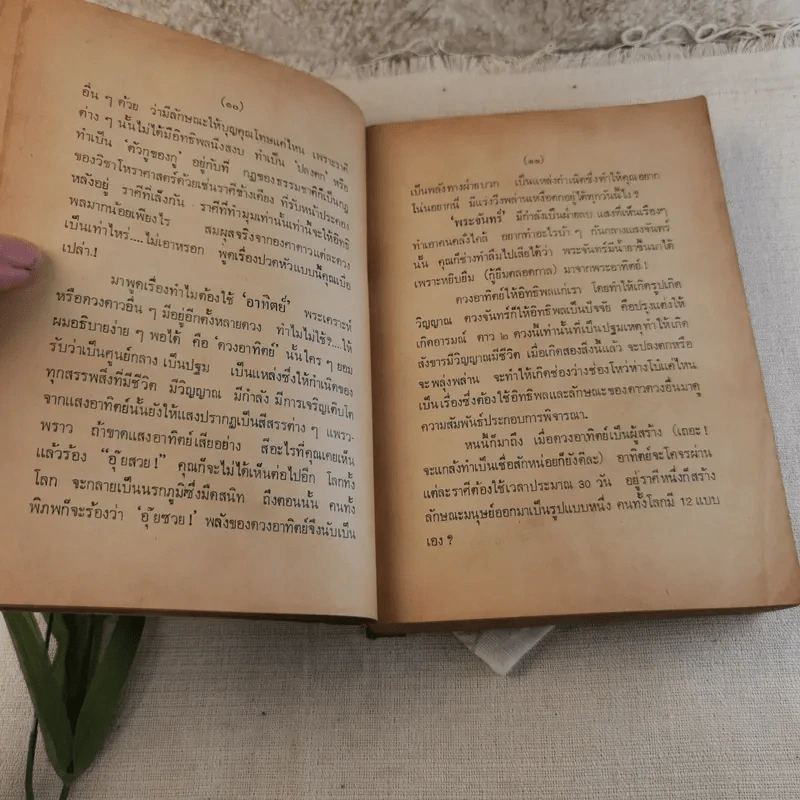 (๑๐)
อื่น ๆ ด้วย ว่ามีลักษณะให้บุญคุณโทษแค่ไหน เพราะราศี
ต่าง ๆ นั้นไม่ได้มีอิทธิพลนิ่งสงบ ทำเป็น 'ปลงตก' หรือ
ทำเป็น 'ตัวกูของกู' อยู่กับที่ กฎของธรรมชาติก็เป็นกฎ
ของวิชาโหราศาสตร์ด้วยเช่นราศีข้างเคียง ที่รับหน้าประคอง
หลังอยู่ ราศีที่เล็งกัน ราศีที่ทำมุมเท่านั้นเท่านี้จะให้อิทธิ
พลมากน้อยเพียงไร สมผุสจริงจากองศาดาวแต่ละดวง
เป็นเท่าไหร่....ไม่เอาหรอก พูดเรื่องปวดหัวแบบนี้คุณเบื่อ
เปล่า.!
มาพูดเรื่องทำไมต้องใช้ 'อาทิตย์' พระเคราะห์
หรือดวงดาวอื่น ๆ มีอยู่อีกตั้งหลายดวง ทำไมไม่ใช้?....ให้
ผมอธิบายง่าย ๆ พอได้ คือ 'ดวงอาทิตย์' นั้นใคร ๆ ยอม
รับว่าเป็นศูนย์กลาง เป็นปฐม เป็นแหล่งซึ่งให้กำเนิดของ
ทุกสรรพสิ่งที่มีชีวิต มีวิญญาณ มีกำลัง มีการเจริญเติบโต
จากแสงอาทิตย์นั้นยังให้แสงปรากฏเป็นสีสรรต่าง ๆ แพรว-
พราว ถ้าขาดแสงอาทิตย์เสียอย่าง สีอะไรที่คุณเคยเห็น
แล้วร้อง "อุ๊ยสวย!" คุณก็จะไม่ได้เห็นต่อไปอีก โลกทั้ง
โลก จะกลายเป็นนรกภูมิซึ่งมืดสนิท ถึงตอนนั้น คนทั้ง
พิภพก็จะร้องว่า 'อุ๊ยซวย!' พลังของดวงอาทิตย์จึงนับเป็น
(๑๑)
เป็นพลังทางฝ่ายบวก เป็นแหล่งกำเนิดซึ่งทำให้คุณอยาก
โน่นอยากนี่ มีแรงวิ่งพล่านเหงื่อตกอยู่ได้ทุกวันนี้ไง?
'พระจันทร์' มีกำลังเป็นฝ่ายลบ แสงที่เห็นเรืองๆ
ทำเอาคนคลั่งใคล้ อยากทำอะไรบ้า ๆ กันกลางแสงจันทร์
นั้น คุณก็ช่างทำลืมไปเสียได้ว่า พระจันทร์มีน้ำยาขึ้นมาได้
เพราะหยิบยืม (กู้ยืมตลอดกาล) มาจากพระอาทิตย์.!
ดวงอาทิตย์ให้อิทธิพลแก่เรา โดยทำให้เกิดรูปเกิด
วิญญาณ ดวงจันทร์ก็ให้อิทธิพลเป็นปัจจัย คือปรุงแต่งให้
เกิดอารมณ์ ดาว ๒ ดวงนี้เท่านั้นที่เป็นปฐมเหตุทำให้เกิด
สังขารมีวิญญาณมีชีวิต เมื่อเกิดสองสิ่งนี้แล้ว จะปลงตกหรือ
จะพลุ่งพล่าน จะทำให้เกิดช่องว่างช่องโหว่ห่างโบ๋แค่ไหน
เป็นเรื่องซึ่งต้องใช้อิทธิพลและลักษณะของดาวดวงอื่นมาดู
ความสัมพันธ์ประกอบการพิจารณา.
หนนี้ก็มาถึง เมื่อดวงอาทิตย์เป็นผู้สร้าง (เถอะ!
จะแกล้งทำเป็นเชื่อสักหน่อยก็ยังดีละ) อาทิตย์จะโคจรผ่าน
แต่ละราศีต้องใช้เวลาประมาณ 30 วัน อยู่ราศีหนึ่งก็สร้าง
ลักษณะมนุษย์ออกมาเป็นรูปแบบหนึ่ง คนทั้งโลกมี 12 แบบ
เอง ?